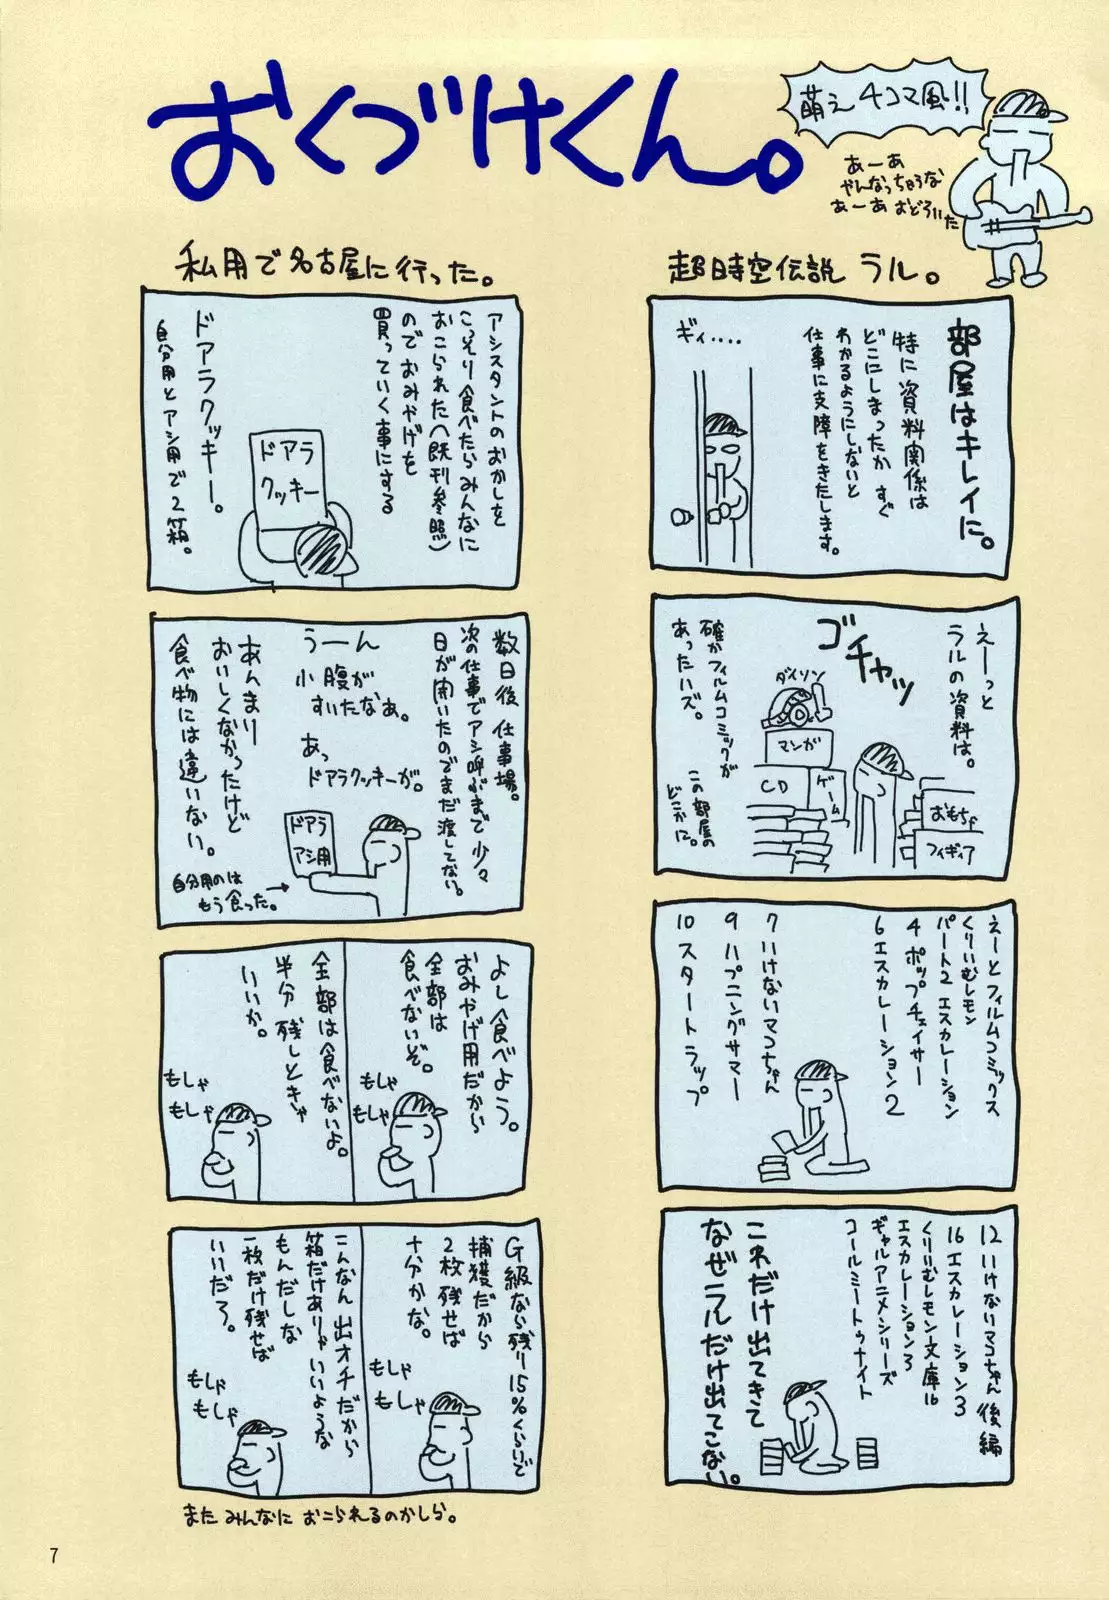 おくづけくん。
萌え4コマ風!!
あーあ
やんなっちゃうな
あーあ おどろいた
超時空伝説 ラル。
部屋はキレイに。
特に資料関係は
どこにしまったか すぐ
わかるようにしないと
仕事に支障をきたします。
ギィ....
えーっと
ラルの資料は。
ゴチャッ
ダイソン
マンガ
CD
ゲーム
おもちゃ
フィギィア
確かフィルムコミックが
あったハズ。
この部屋の
どこかに。
えーとフィルムコミックス
くりいむレモン
パート2 エスカレーション
4 ポップチェイサー
6 エスカレーション2
7 いけないマコちゃん
9 ハプニングサマー
10 スタートラップ
12 いけないマコちゃん後編
16 エスカレーション3
くりいむレモン文庫16
エスカレーション3
ギャルアニメシリーズ
コールミートゥナイト
これだけ出てきて
なぜラルだけ出てこない。
私用で名古屋に行った。
アシスタントのおかしを
こっそり食べたらみんなに
おこられた(既刊参照)
のでおみやげを
買っていく事にする
ドアラ
クッキー
ドアラクッキー。
自分用とアシ用で2箱。
数日後 仕事場。
次の仕事でアシ呼ぶまで少々
日が開いたのでまだ渡してない。
うーん
小腹が
すいたなあ。
あっ
ドアラクッキーが。
ドアラ
アシ用
あんまり
おいしくなかったけど
食べ物には違いない。
自分用のは
もう食った。
よし食べよう。
おみやげ用だから
全部は
食べないぞ。
もしゃ
もしゃ
全部は食べないよ。
半分 残しときゃ
いいか。
もしゃ
もしゃ
G級なら残り15%くらいで
捕獲だから
2枚残せば
十分かな。
もしゃ
もしゃ
こんなん出オチだから
箱だけありゃいいような
もんだしな
一枚だけ残せば
いいだろ。
もしゃ
もしゃ
また みんなに おこられるのかしら。
7